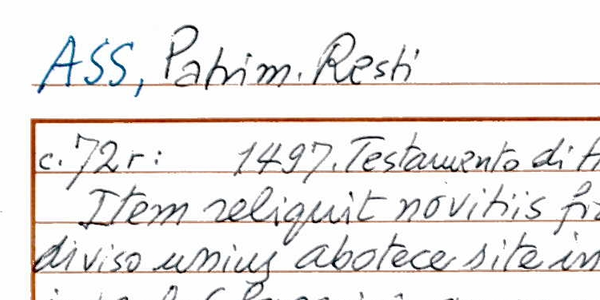 ASS, Patrim. Resti
c. 72 r: 1497. Testamento di
Item reliquit novitiis
diviso unius abotece site in